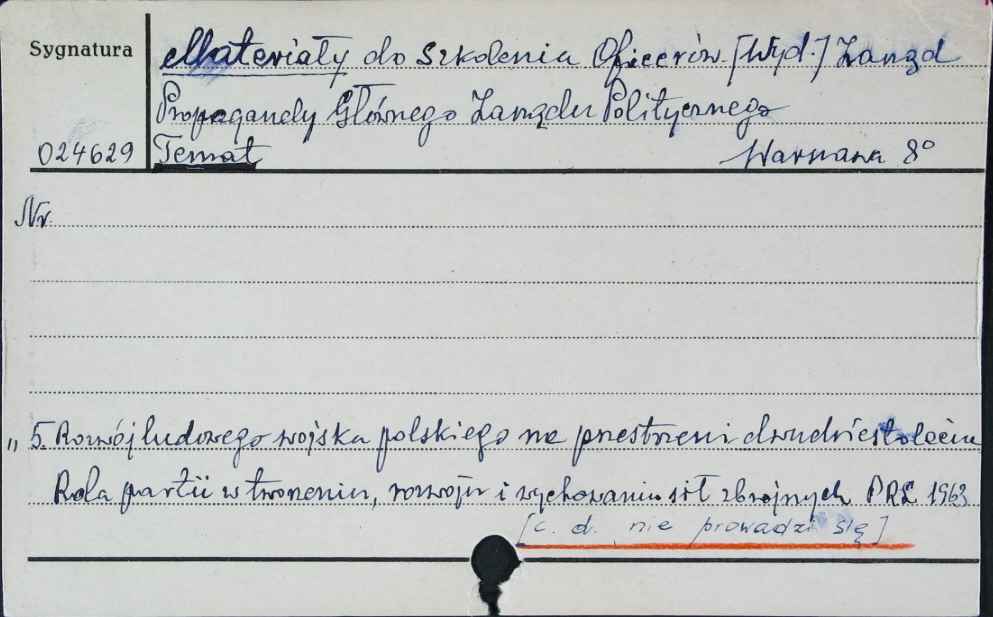 Sygnatura
Materiały do Szkolenia Oficerów. [Wyd.] Zarząd
Propagandy Głównego Zarządu Politycznego
024629 Temat Warszawa 8°
Nr.
„ 5. Rozwój ludowego wojska polskiego na przestrzeni dwudziestolecia
Rola partii w tworzeniu, rozwoju i wychowaniu sił zbrojnych PRL 1963
[c. d. nie prowadzi się]